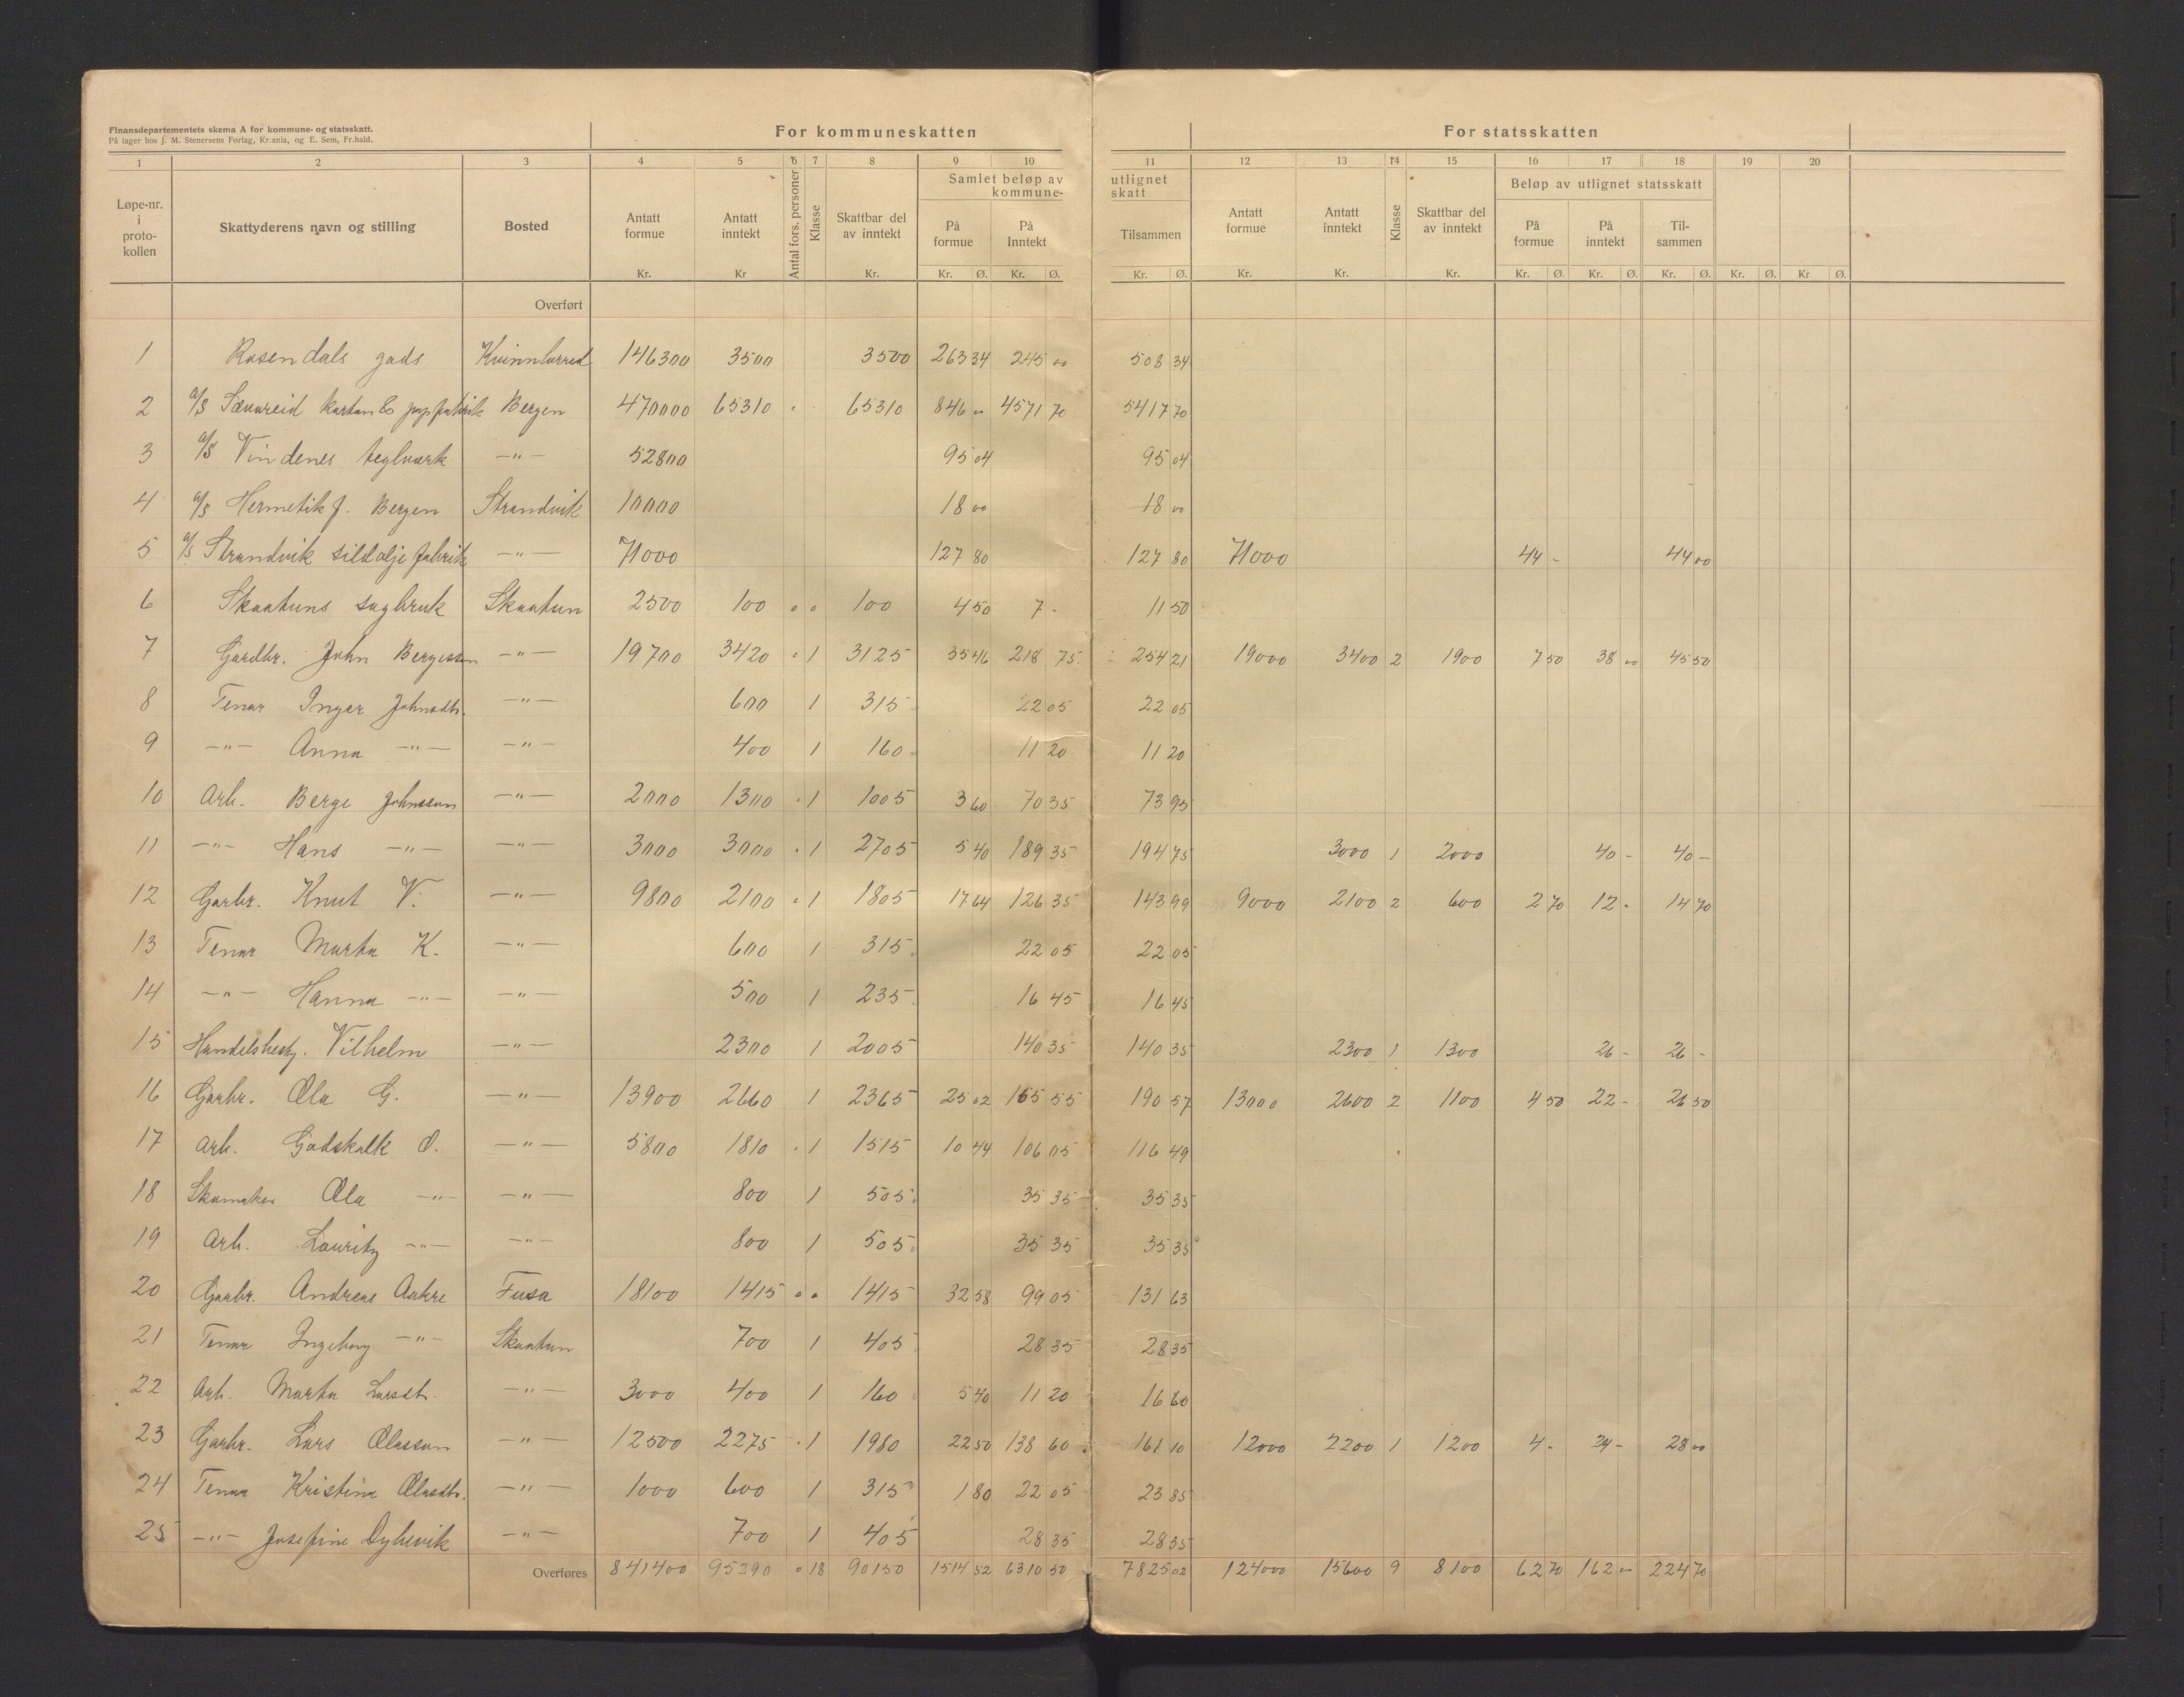 Finansdepartementets skema A for kommune- og statsskatt.
På lager hos J. M. Stenersens Forlag, Kr.ania, og E. Sem, Fr.hald.
For kommuneskatten For statsskatten
1 2 3 4 5 6 7 8 9 10 11 12 13 14 15 16 17 18 19 20
Løpe-nr. i proto-kollen Skattyderens navn og stilling Bosted Antatt formue Kr. Antatt inntekt Kr Antal fors. personer Klasse Skattbar del av inntekt Kr. Samlet beløp av kommune- På formue Kr. Ø. På Inntekt Kr. Ø. utlignet skatt Tilsammen Kr. Ø. Antatt formue Kr. Antatt inntekt Kr. Klasse Skattbar del av inntekt Kr. Beløp av utlignet statsskatt På formue Kr. Ø. På inntekt Kr. Ø. Til-sammen Kr. Ø. Kr. Ø. Kr Ø.
Overført
1 Rosendals gods Kvinnherred 146300 3500 3500 263 34 245 00 508 34
2 a/s Sævareid karton & papfabrik Bergen 470000 65310 . 65310 846 00 4571 70 5417 70
3 a/s Vindenes teglværk —"— 52800 95 04 95 04
4 a/s Hermetikf. Bergen Strandvik 10000 18 00 18 00
5 a/s Strandvik sildoljefabrik —"— 71000 127 80 127 80 71000 44 - 44 00
6 Skaatuns sagbruk Skaatun 2500 100 0 0 100 4 50 7 - 11 50
7 Gardbr. John Bergesson —"— 19700 3420 . 1 3125 35 46 218 75 254 21 19000 3400 2 1900 7 50 38 00 45 50
8 Tenar Inger Johnsdtr. —"— 600 1 315 22 05 22 05
9 —"— Anna —"— —"— 400 1 160 11 20 11 20
10 Arb. Berge Johnsson —"— 2000 1300 . 1 1005 3 60 70 35 73 95
11 —"— Hans —"— —"— 3000 3000 . 1 2705 5 40 189 35 194 75 3000 1 2000 40 - 40 -
12 Garbr. Knut V. —"— 9800 2100 . 1 1805 17 64 126 35 143 99 9000 2100 2 600 2 70 12 - 14 70
13 Tenar Marta K. —"— 600 1 315 22 05 22 05
14 —"— Hanna —"— —"— 500 1 235 16 45 16 45
15 Handelsbesty. Vilhelm —"— 2300 1 2005 140 35 140 35 2300 1 1300 26 - 26 -
16 Garbr. Ola G. —"— 13900 2660 1 2365 25 02 165 55 190 57 13000 2600 2 1100 4 50 22 - 26 50
17 Arb. Godskalk O. —"— 5800 1810 . 1 1515 10 44 106 05 116 49
18 Skomaker Ola —"— —"— 800 1 505 35 35 35 35
19 Arb. Lauritz —"— —"— 800 1 505 35 35 35 35
20 Garbr. Andreas Aakre Fusa 18100 1415 0 0 1415 32 58 99 05 131 63
21 Tenar Ingeborg —"— Skaatun 700 1 405 28 35 28 35
22 Arb. Marta Larsdt. —"— 3000 400 1 160 5 40 11 20 16 60
23 Garbr. Lars Olasson —"— 12500 2275 . 1 1980 22 50 138 60 161 10 12000 2200 1 1200 4 - 24 - 28 00
24 Tenar Kristina Olasdtr. —"— 1000 600 1 315 1 80 22 05 23 85
25 —"— Josefine Dyhevik —"— 700 1 405 28 35 28 35
Overføres 841400 95290 0 18 90150 1514 52 6310 50 7825 02 124000 15600 9 8100 62 70 162 00 224 70